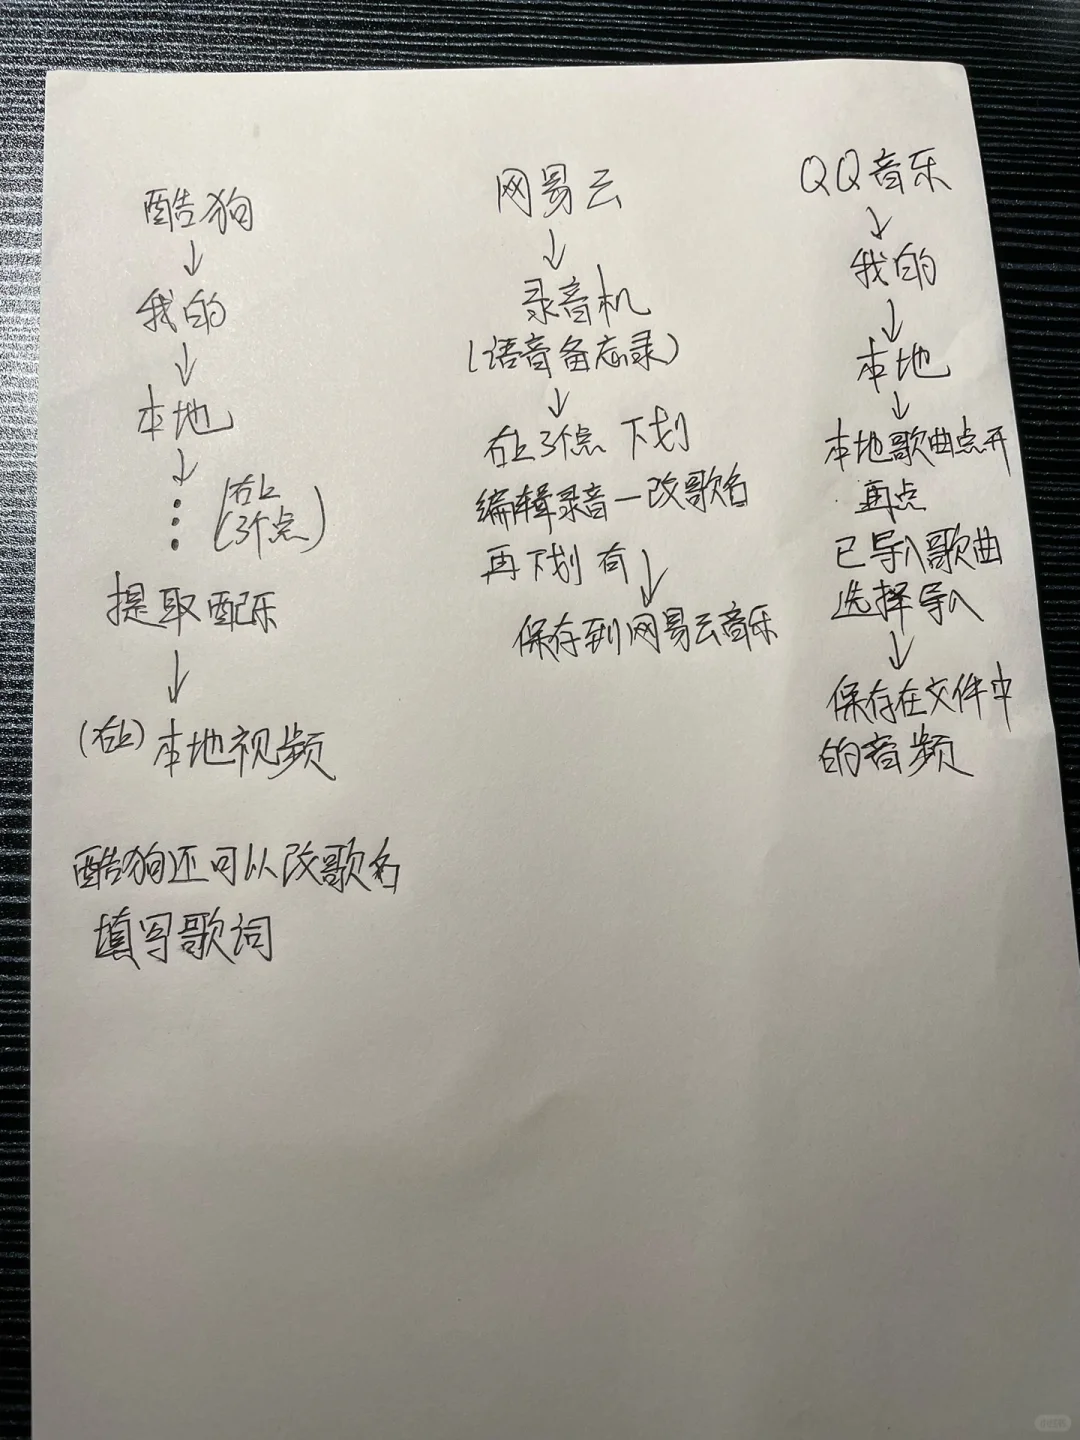 酷狗
↓
我的
↓
本地
↓
⋮ (右上
3个点)
提取配乐
↓
(右上)本地视频
酷狗还可以改歌名
填写歌词
网易云
↓
录音机
(语音备忘录)
↓
右上3个点 下划
编辑录音一改歌名
再下划 有↓
保存到网易云音乐
QQ音乐
↓
我的
↓
本地
↓
本地歌曲点开
再点
已导入歌曲
选择导入
↓
保存在文件中
的音频